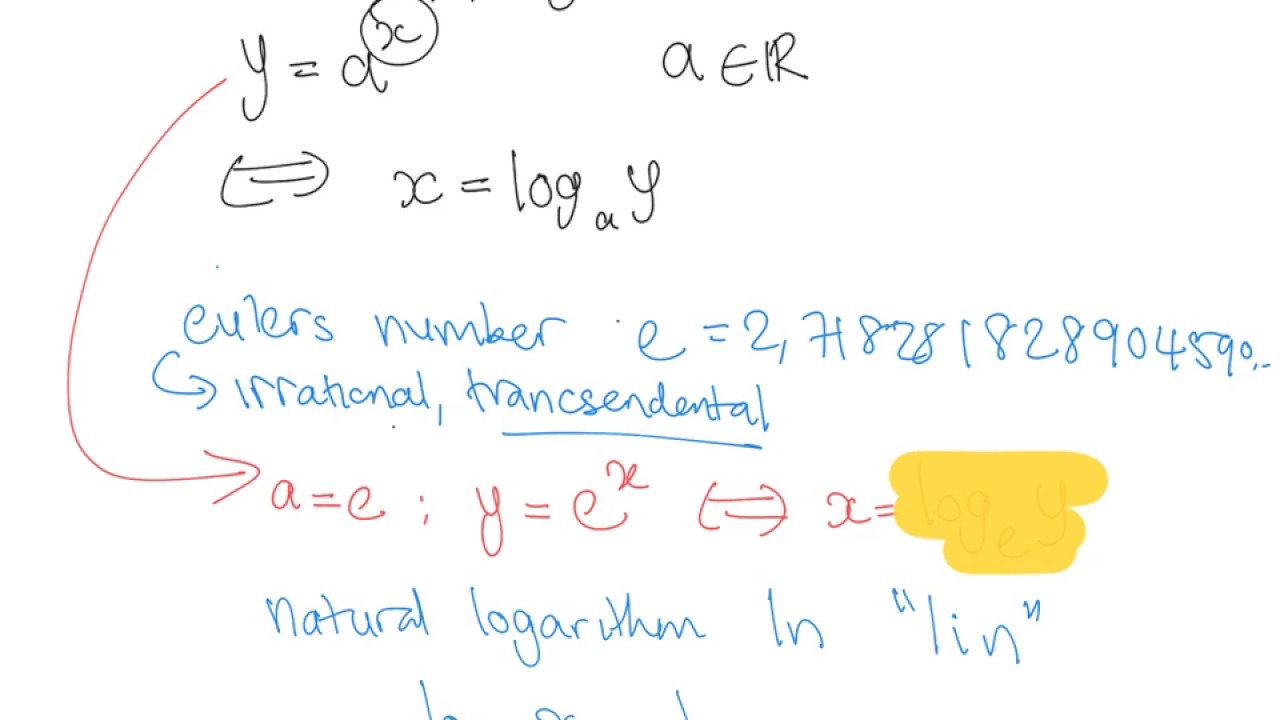 y = a^x a ∈ ℝ
⟺ x = log_a y
eulers number e = 2,718281828904590..
↳ irrational, trancsendental
a = e ; y = e^x ⟺ x = log_e y
natural logarithm ln "lin"